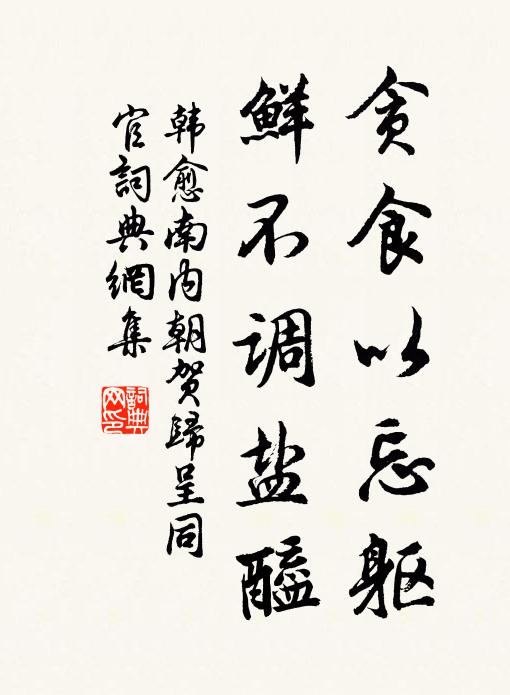 贪食以忘躯
鲜不调盐醯
韩愈南内朝贺歸呈同
官詞典網集
詞典
网印